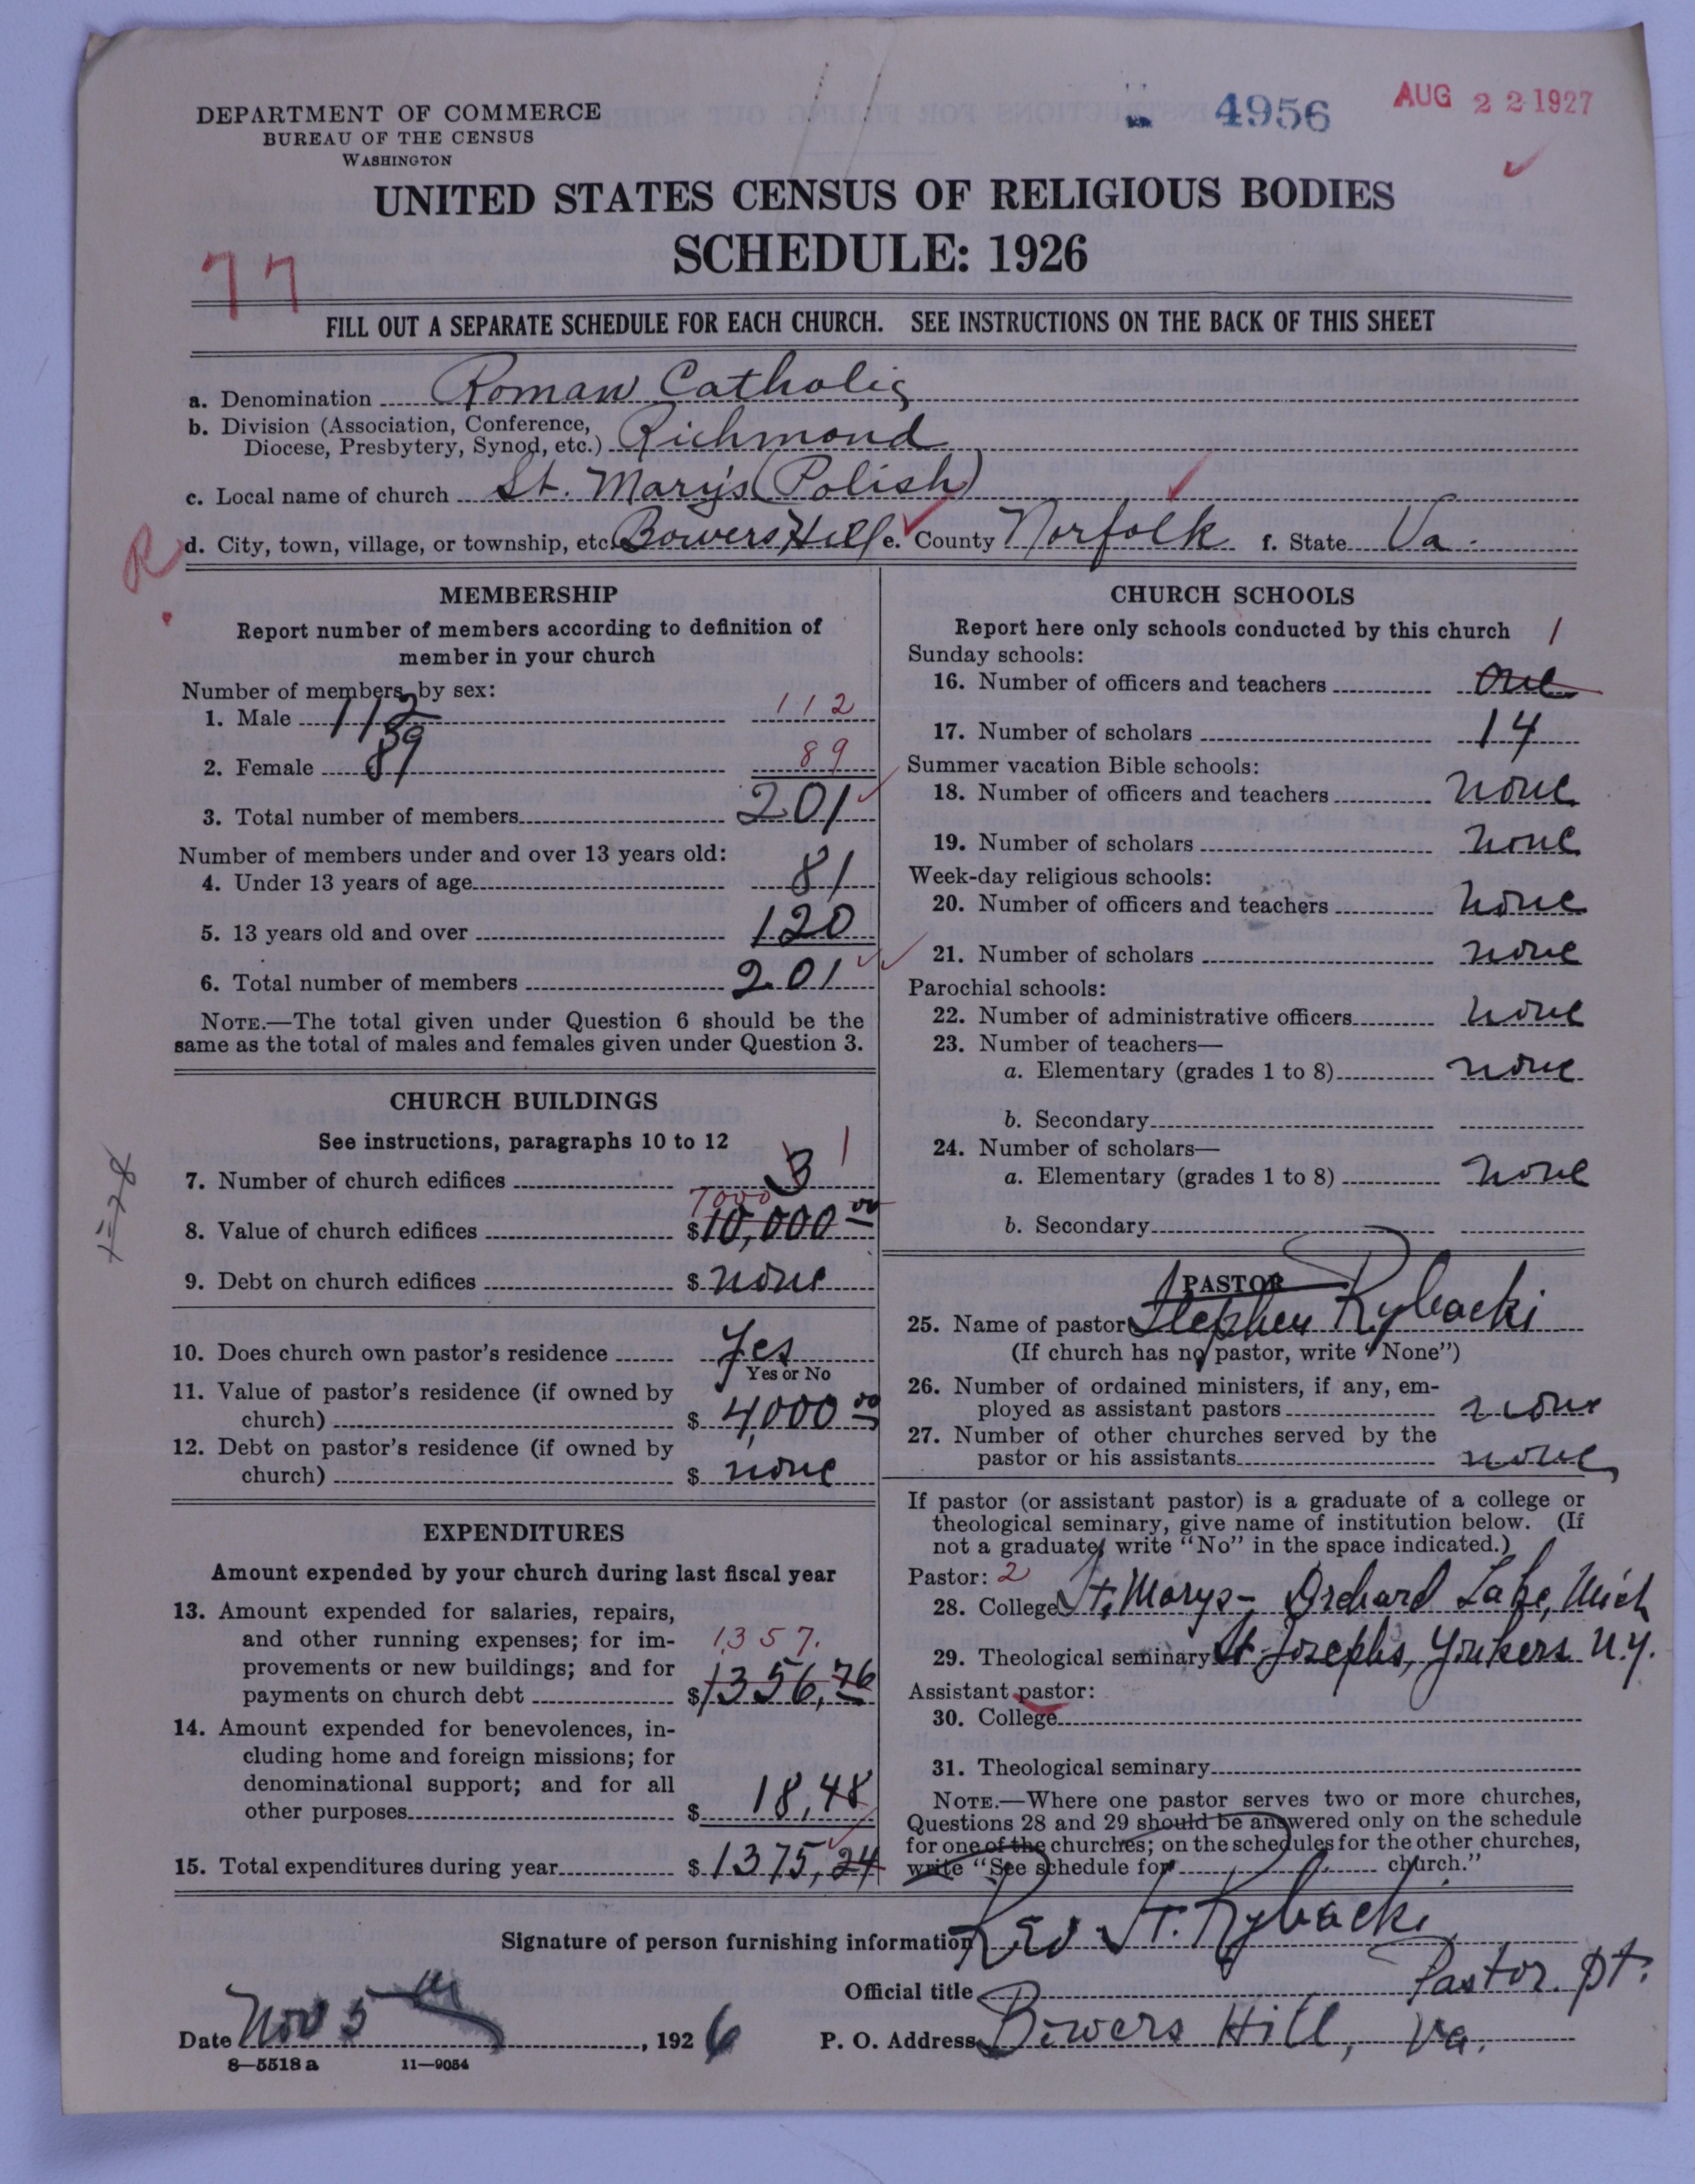 4956
AUG 22 1927
DEPARTMENT OF COMMERCE
BUREAU OF THE CENSUS
WASHINGTON
UNITED STATES CENSUS OF RELIGIOUS BODIES
SCHEDULE: 1926
77
FILL OUT A SEPARATE SCHEDULE FOR EACH CHURCH. SEE INSTRUCTIONS ON THE BACK OF THIS SHEET
a. Denomination Roman Catholic
b. Division (Association, Conference,
Diocese, Presbytery, Synod, etc.) Richmond
c. Local name of church St. Mary's (Polish)
R
d. City, town, village, or township, etc. Bowers Hill e. County Norfolk f. State Va.
MEMBERSHIP
Report number of members according to definition of
member in your church
Number of members by sex:
1. Male 112 112
2. Female 89 89
3. Total number of members 201
Number of members under and over 13 years old:
4. Under 13 years of age 81
5. 13 years old and over 120
6. Total number of members 201
NOTE.—The total given under Question 6 should be the
same as the total of males and females given under Question 3.
CHURCH BUILDINGS
See instructions, paragraphs 10 to 12
7. Number of church edifices 3 1
7000
8. Value of church edifices $10,000 00
9. Debt on church edifices $ none
10. Does church own pastor's residence Yes
Yes or No
11. Value of pastor's residence (if owned by
church) $ 4,000 00
12. Debt on pastor's residence (if owned by
church) $ none
EXPENDITURES
Amount expended by your church during last fiscal year
13. Amount expended for salaries, repairs,
and other running expenses; for im-
1357.
provements or new buildings; and for
payments on church debt $1356,76
14. Amount expended for benevolences, in-
cluding home and foreign missions; for
denominational support; and for all
other purposes $ 18,48
15. Total expenditures during year $ 1375,24
CHURCH SCHOOLS
Report here only schools conducted by this church
Sunday schools: 1
16. Number of officers and teachers one
17. Number of scholars 14
Summer vacation Bible schools:
18. Number of officers and teachers none
19. Number of scholars none
Week-day religious schools:
20. Number of officers and teachers none
21. Number of scholars none
Parochial schools:
22. Number of administrative officers none
23. Number of teachers—
a. Elementary (grades 1 to 8) none
b. Secondary
24. Number of scholars—
a. Elementary (grades 1 to 8) none
b. Secondary
PASTOR
25. Name of pastor Stephen Rybacki
(If church has no pastor, write "None")
26. Number of ordained ministers, if any, em-
ployed as assistant pastors none
27. Number of other churches served by the
pastor or his assistants none
If pastor (or assistant pastor) is a graduate of a college or
theological seminary, give name of institution below. (If
not a graduate, write "No" in the space indicated.)
Pastor: 2
28. College St. Marys- Orchard Lake, Mich
29. Theological seminary St. Josephs, Yonkers N.Y.
Assistant pastor:
30. College
31. Theological seminary
NOTE.—Where one pastor serves two or more churches,
Questions 28 and 29 should be answered only on the schedule
for one of the churches; on the schedules for the other churches,
write "See schedule for church."
Signature of person furnishing information Rev St. Rybacki
Official title Pastor pt.
Date Nov 5th, 1926 P. O. Address Bowers Hill, Va.
8—5518 a 11—9054